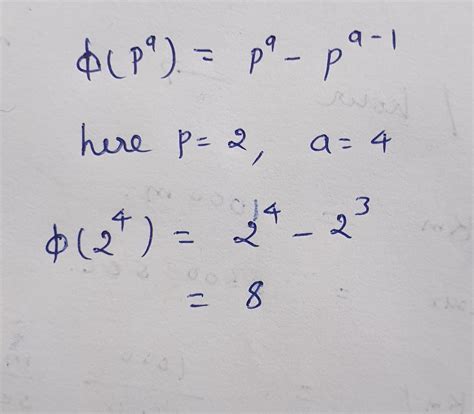 ϕ(p^a) = p^a - p^{a-1}
here p = 2, a = 4
ϕ(2^4) = 2^4 - 2^3
= 8